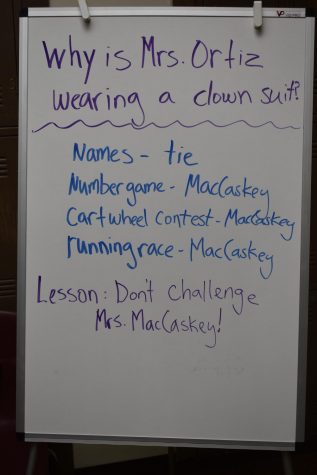 Why is Mrs. Ortiz
wearing a clown suit?
Names - tie
Number game - MacCaskey
Cartwheel Contest - MacCaskey
running race - MacCaskey
Lesson: Don't Challenge
Mrs. MacCaskey!